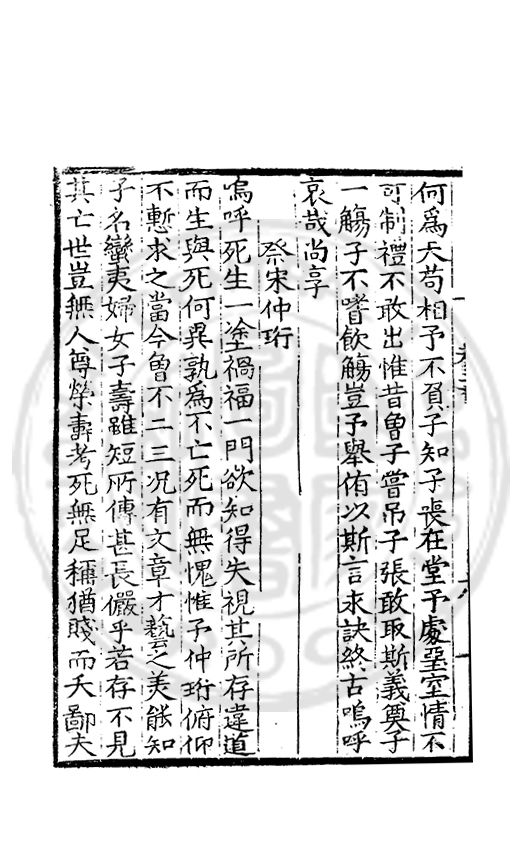 何爲夭苟相予不負子知子喪在堂予處堊室情不
可制禮不敢出惟昔曾子嘗吊子張敢取斯義奠子
一觴子不嘗飲觴豈予舉侑以斯言永訣終古嗚呼
哀哉尚享
祭宋仲珩
嗚呼死生一塗禍福一門欲知得失視其所存違道
而生與死何異孰爲不亡死而無愧惟子仲珩俯仰
不慙求之當今曾不二三况有文章才藝之美能知
子名蠻夷婦女子壽雖短所傳甚長儼乎若存不見
其亡世豈無人尊榮壽考死無足稱猶賤而夭鄙夫